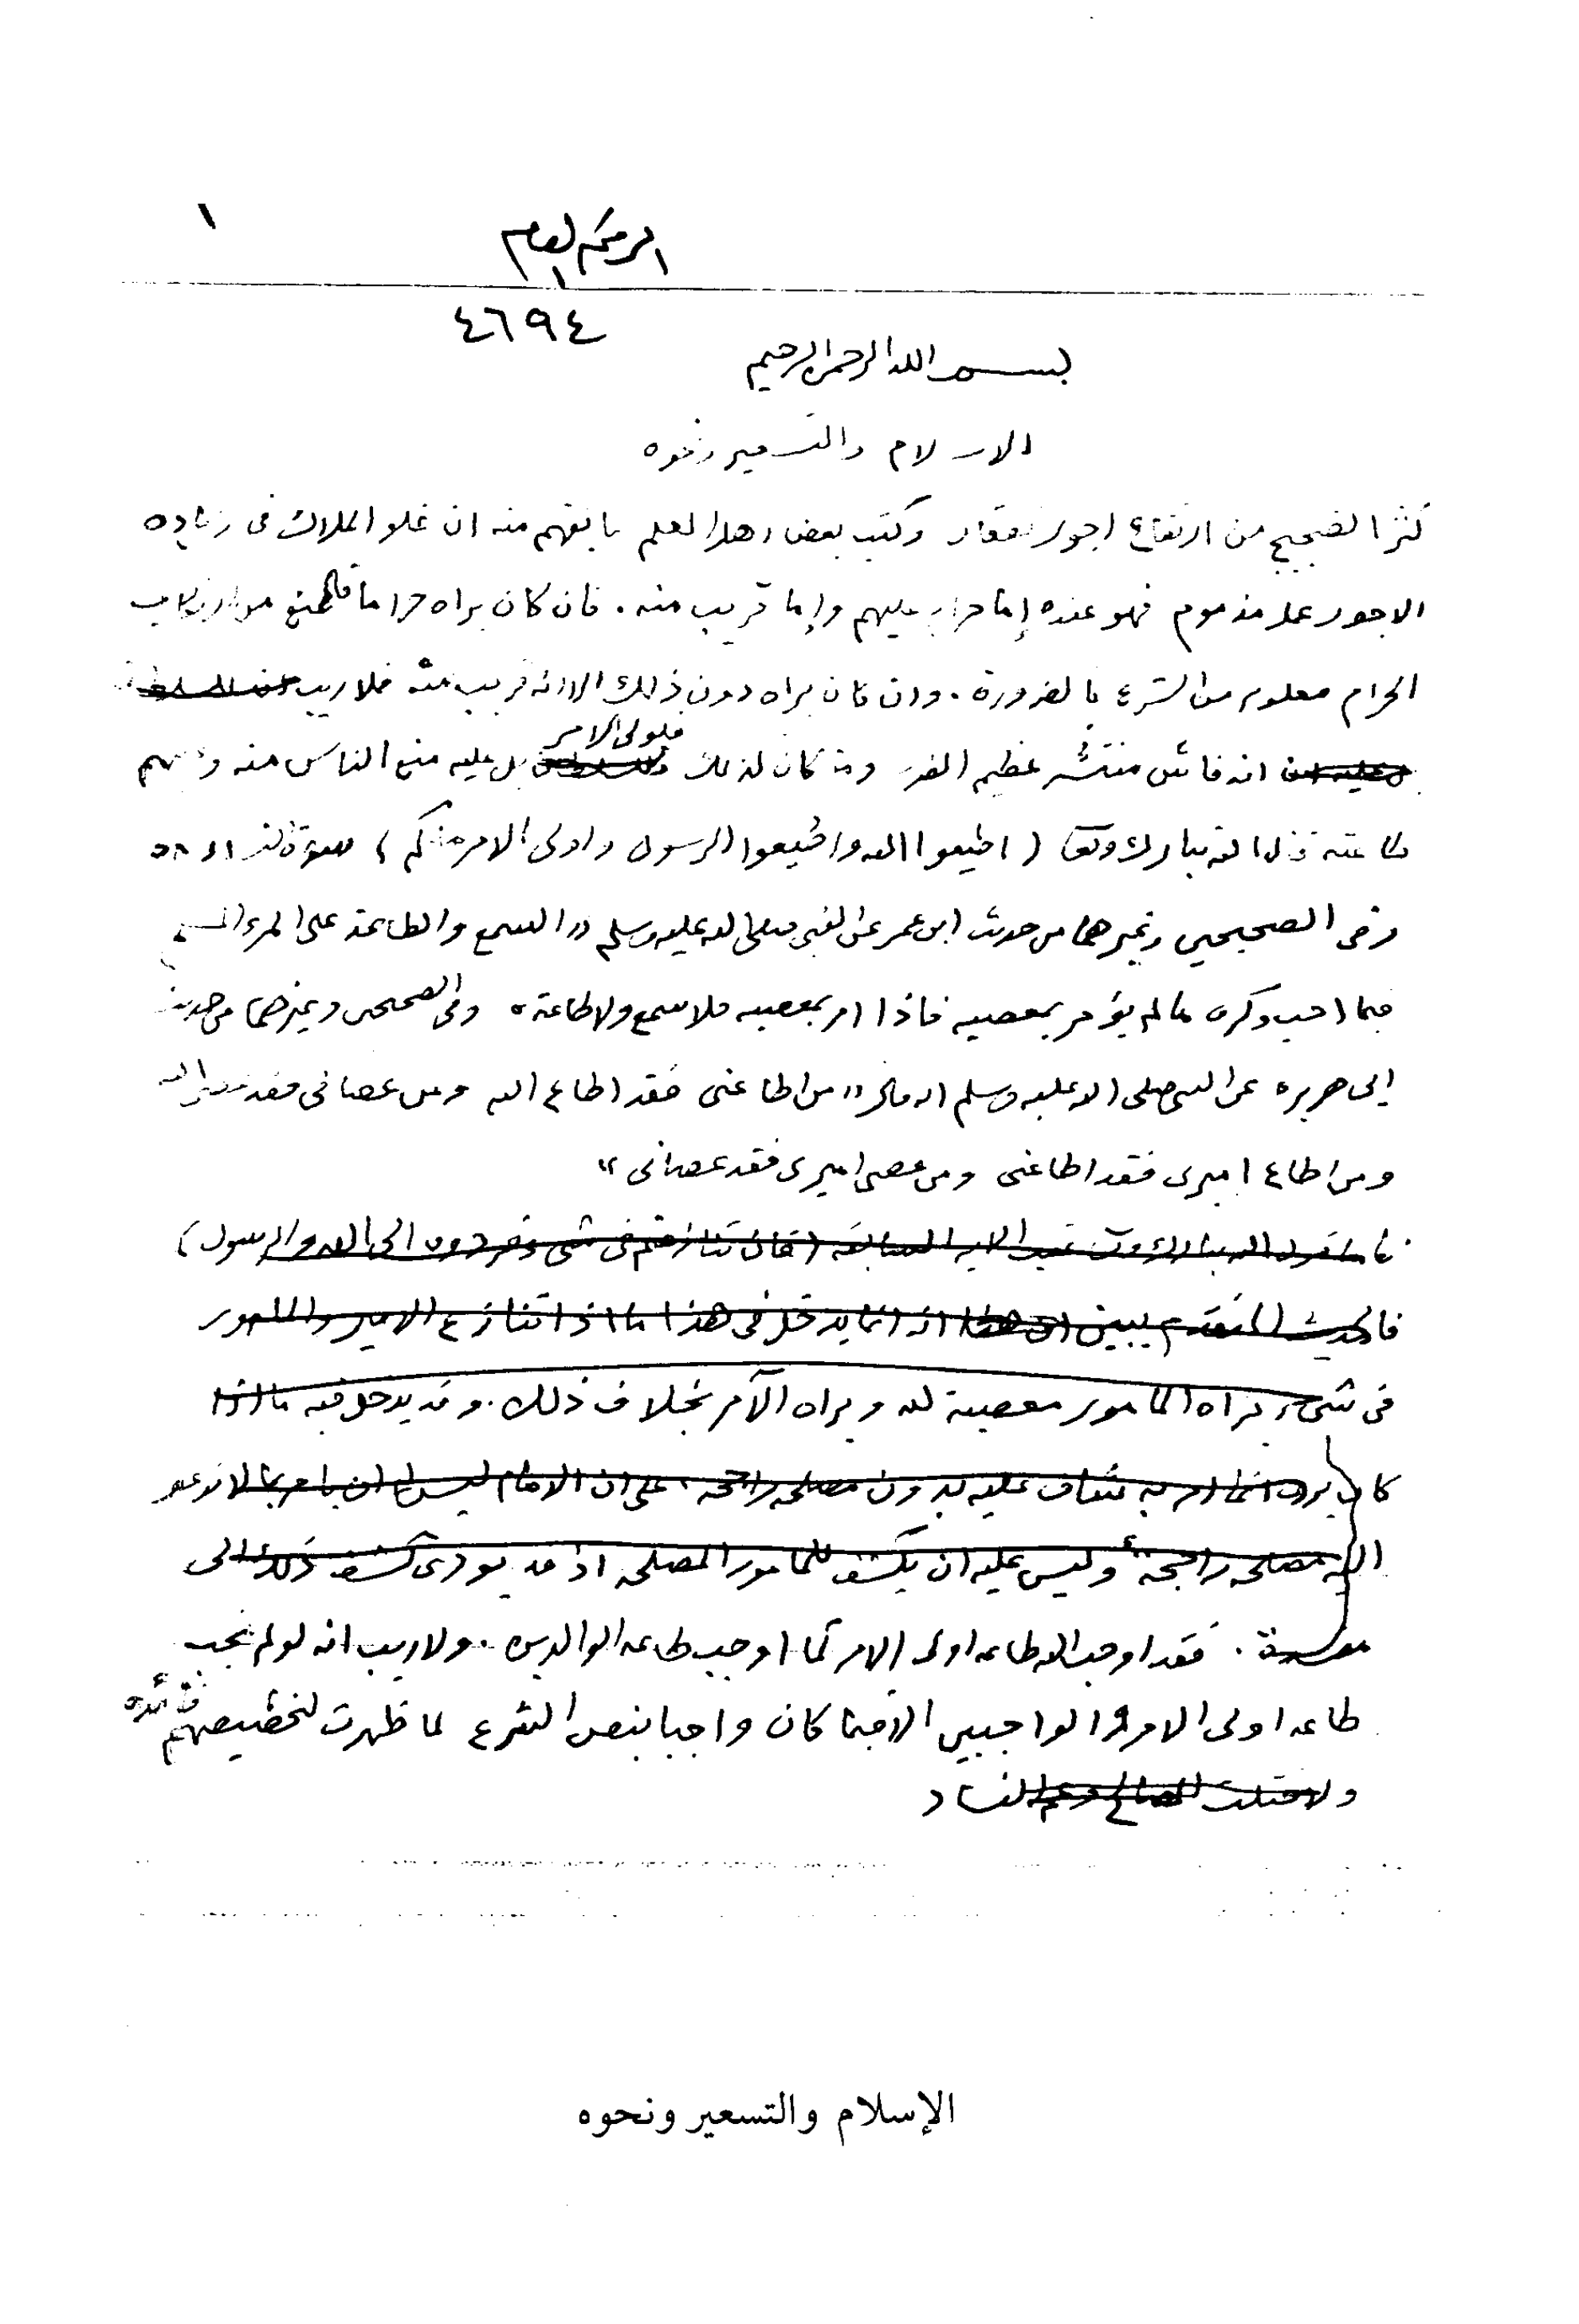 ١
الرقم العام
٤٦٩٤
بسم الله الرحمن الرحيم
الاسلام والتسعير ونحوه
كثر الضجيج من ارتفاع اجور العقار وكتب بعض اهل العلم ما يفهم منه ان غلو الملاك فى زياده
الاجور عمل مذموم فهو عنده إما حرام عليهم وإما قريب منه . فان كان يراه حراما فالمنع من ارتكاب
الحرام معلوم من الشرع بالضرورة . وان كان يراه دون ذلك الا انه قريب منه فلا ريب
انه فاش منتشر عظيم الضرر وما كان كذلك فلولى الامر بل عليه منع الناس منه وعليهم
طاعته قال الله تبارك وتعا ( اطيعوا الله واطيعوا الرسول واولى الامر منكم ) سورة النساء ٥٨
وفى الصحيحين وغيرهما من حديث ابن عمر عن النبى صلى الله عليه وسلم « السمع والطاعة على المرء المسلم
فيما احب وكره ما لم يؤمر بمعصيه فاذا امر بمعصيه فلا سمع ولا طاعة » وفى الصحيحين وغيرهما من حديث
ابى هريره عن النبى صلى الله عليه وسلم انه قال « من اطاعنى فقد اطاع الله ومن عصانى فقد عصى الله
ومن اطاع اميرى فقد اطاعنى ومن عصى اميرى فقد عصانى »
فاما قول الله تبارك وتعا عقب الايه السابقه ( فان تنازعتم فى شى فردوه الى الله والرسول )
فالحديث المتقدم يبين انه انما يدخل فى هذا ما اذا تنازع الامير والمامور
فى شىء يراه المامور معصية لله ويراه الآمر بخلاف ذلك . وقد يدخل فيه ما اذا
كان يرى انما امر به شاق عليه بدون مصلحه راجحه ، على ان الامام ليس له ان يامر بما لا تدعو
اليه مصلحه راجحة وليس عليه ان يكشف للمامور المصلحه اذ قد يودى كشف ذلك الى
مفسدة . فقد اوجب الله طاعه اولى الامر كما اوجب طاعه الوالدين . ولا ريب انه لو لم تجب
طاعه اولى الامر والوالدين الا فيما كان واجبا بنص الشرع لما ظهرت لتخصيصهم فائده
ولاختلت المصالح وعم الفساد
الإسلام والتسعير ونحوه